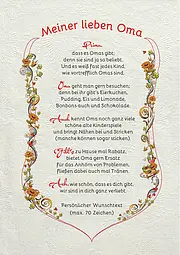 Meiner lieben Oma
Prima,
dass es Omas gibt;
denn sie sind ja so beliebt.
Und es weiß fast jedes Kind,
wie vortrefflich Omas sind.
Oma geht man gern besuchen;
denn bei ihr gibt's Eierkuchen,
Pudding, Eis und Limonade,
Bonbons auch und Schokolade.
Auch kennt Oma noch ganz viele
schöne alte Kinderspiele
und bringt Nähen bei und Stricken
(manche können sogar sticken).
Gibt's zu Hause mal Rabatz,
bietet Oma gern Ersatz
für das Anhör'n von Problemen,
fließen dabei auch mal Tränen.
Ach, wie schön, dass es dich gibt,
wir sind in dich ganz verliebt.
Persönlicher Wunschtext
(max. 70 Zeichen)